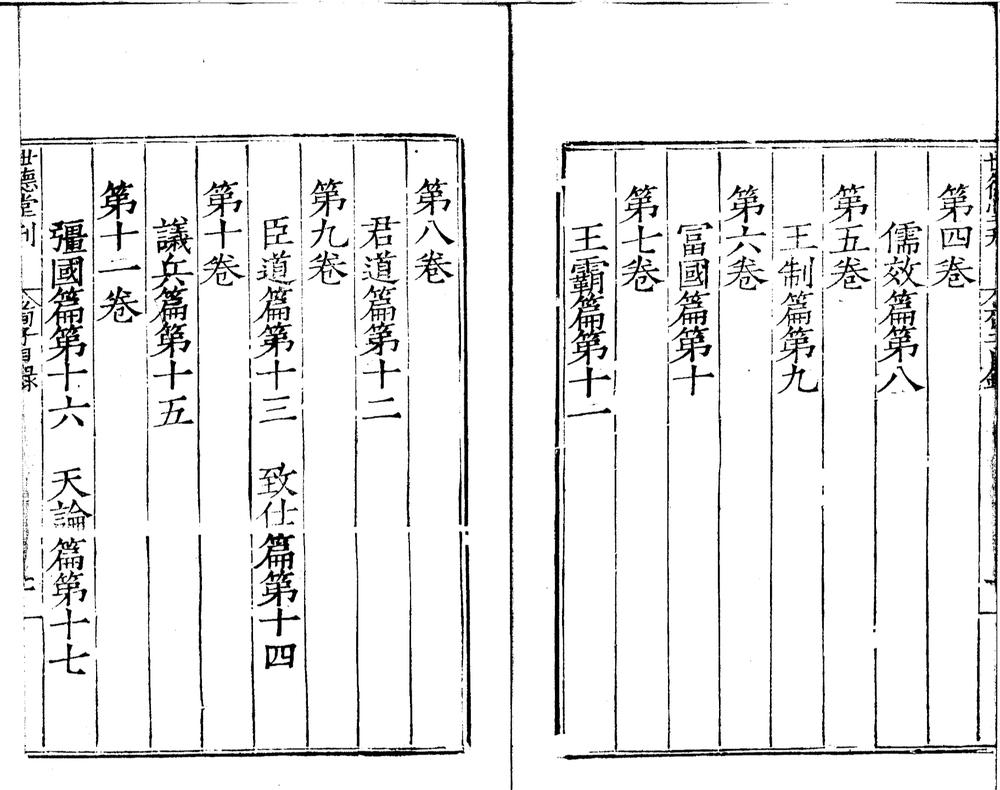 第四卷
儒效篇第八
第五卷
王制篇第九
第六卷
冨國篇第十
第七卷
王霸篇第十一
第八卷
君道篇第十二
第九卷
臣道篇第十三 致仕篇第十四
第十卷
議兵篇第十五
第十一卷
彊國篇第十六 天論篇第十七
世德堂刊
荀子目錄